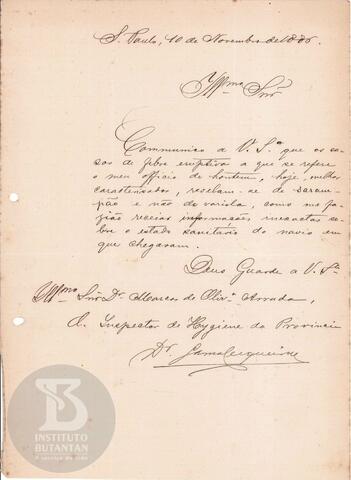 S. Paulo, 10 de Novembro de 1886.
Illmo Snr
Communico a V. Sa que os ca-
sos de febre eruptiva a que se refere
o meu officio de hontem, hoje, melhor
caracterisados, revelam-se de saram-
pão e não de variola, como me fa-
zião receiar informações inexactas so-
bre o estado sanitario do navio em
que chegaram.
Deus Guarde a V. Sa
Illmo Snr Dr Marcos de Olivra Arruda,
D. Inspector de Hygiene da Provincia
Dr
INSTITUTO
BUTANTAN
A serviço da vida